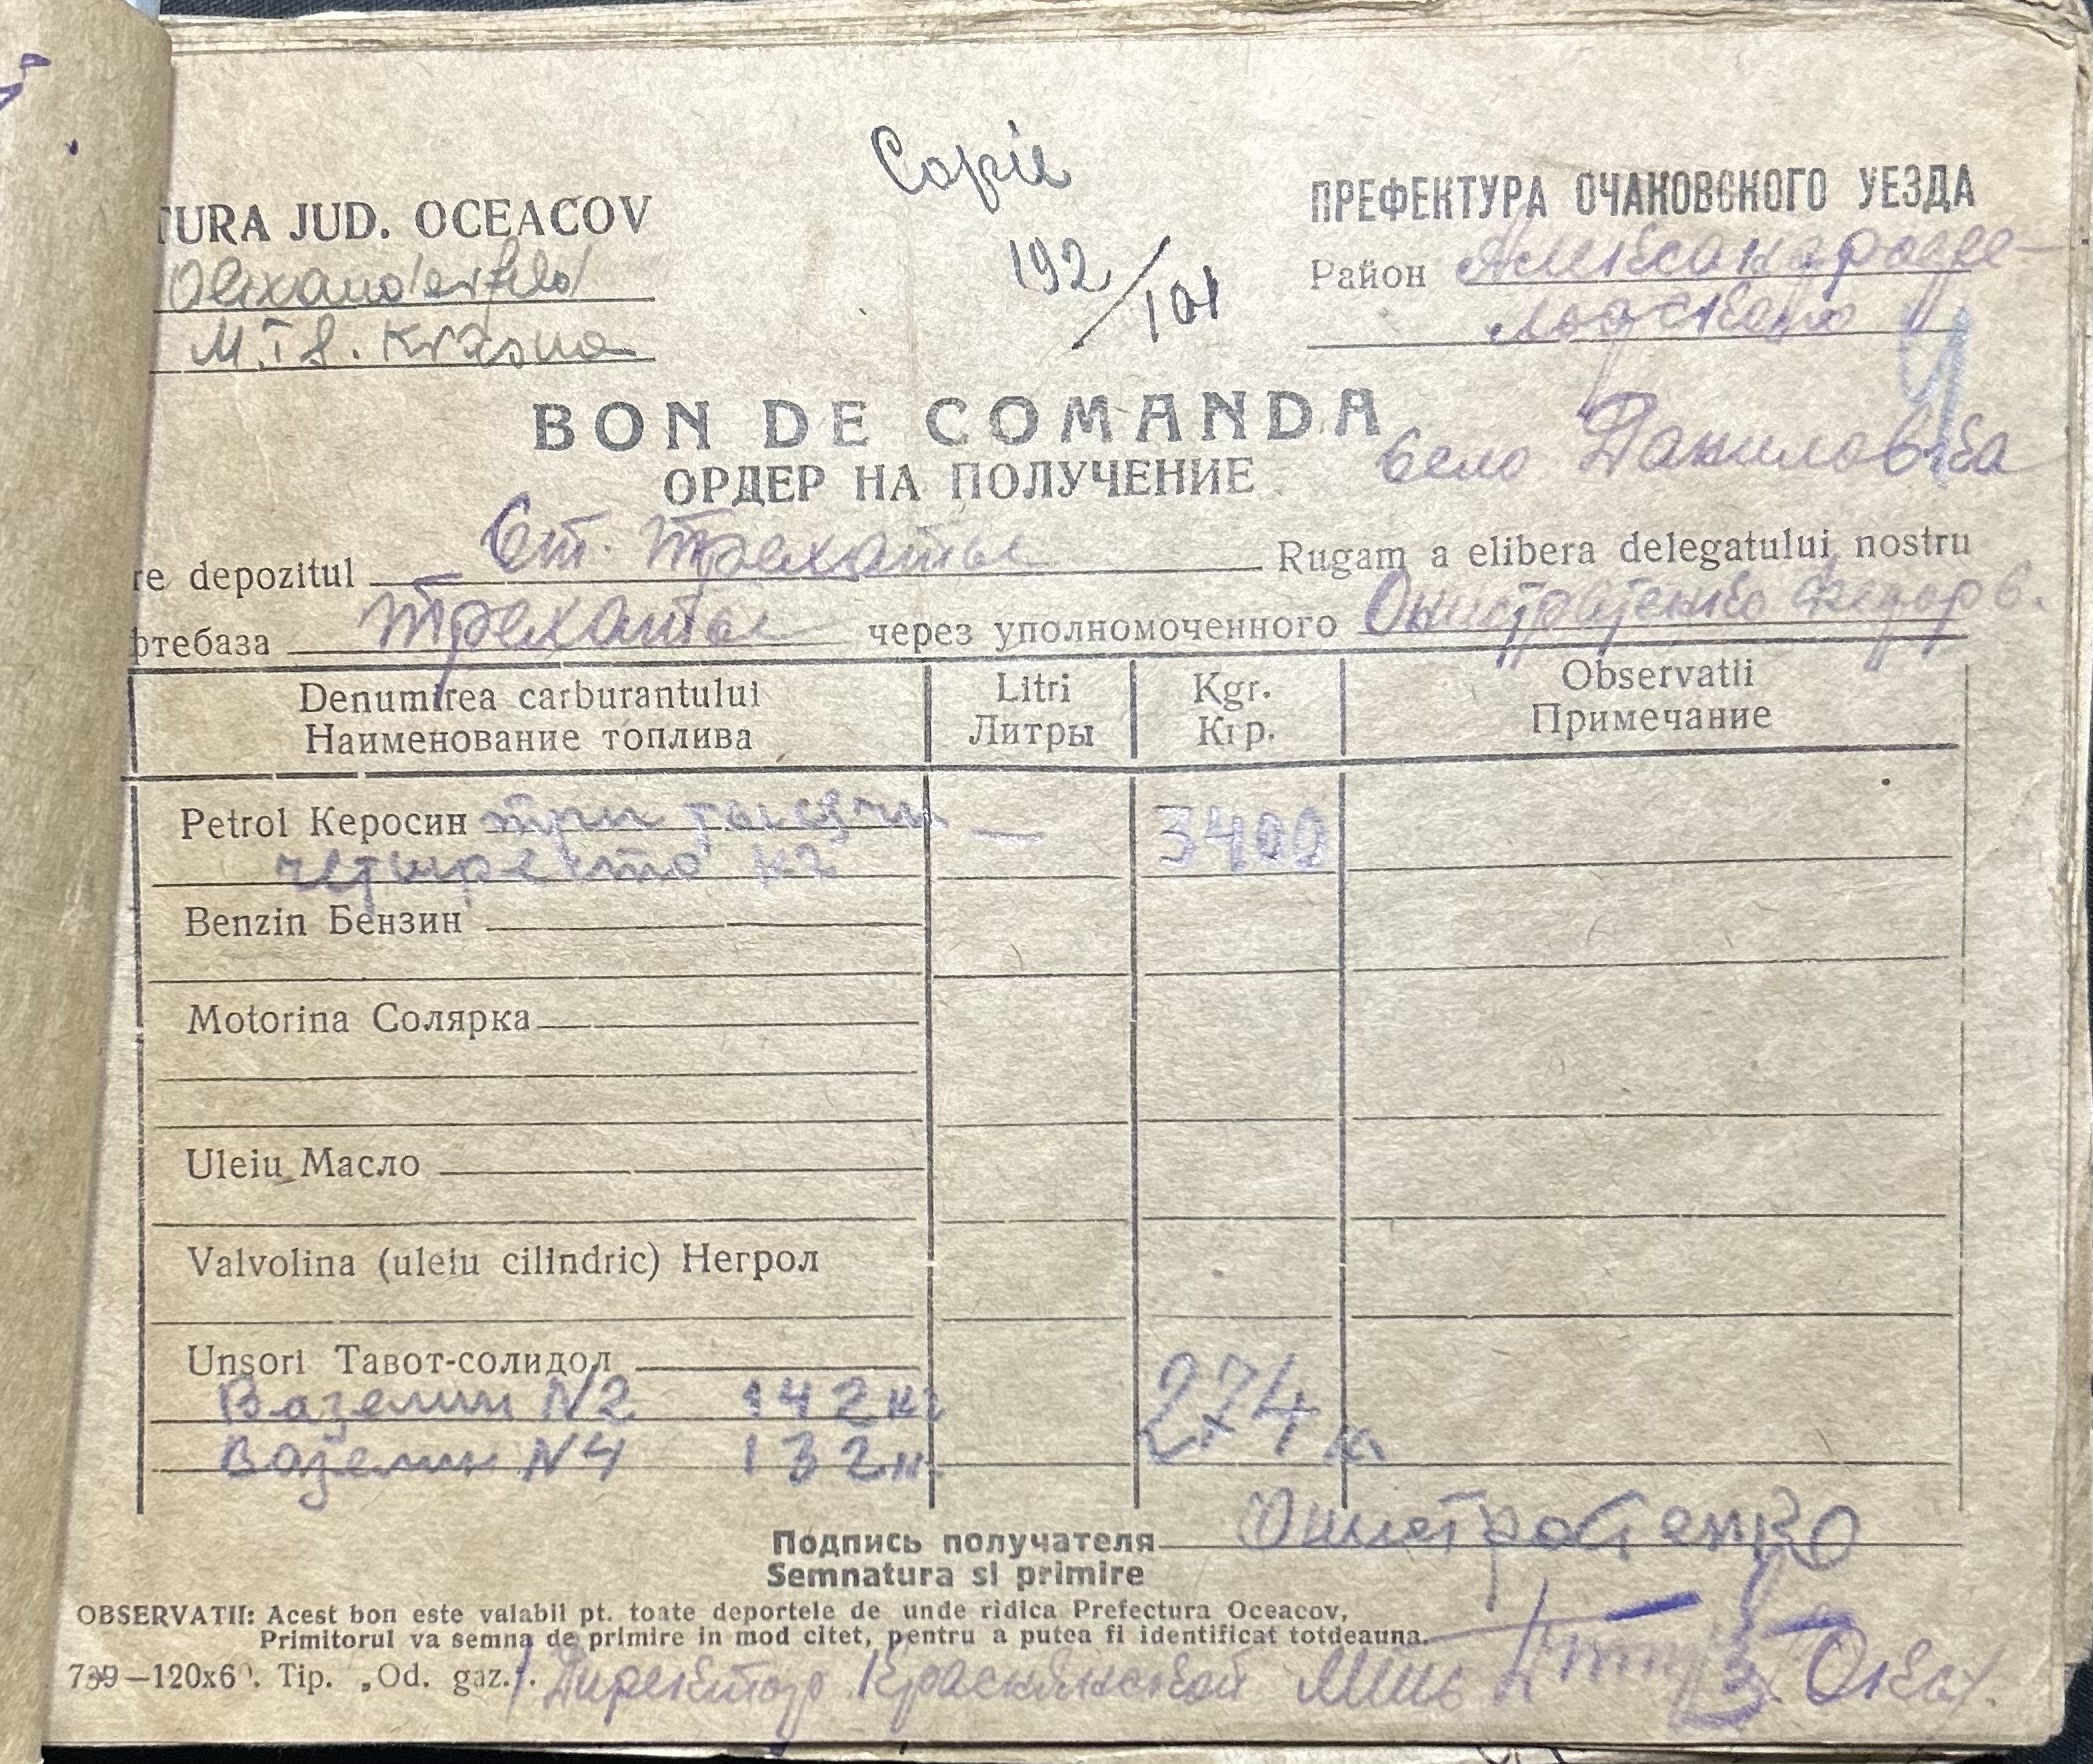 Copie
TURA JUD. OCEACOV
ПРЕФЕКТУРА ОЧАКОВСКОГО УЕЗДА
192/101
Район Александрофе-
Olixanderfeld
M.T.S. Krasna
BON DE COMANDA
ОРДЕР НА ПОЛУЧЕНИЕ
Село Даниловка
re depozitul Ст. Трехаты Rugam a elibera delegatului nostru
фтебаза Трехаты через уполномоченного Онистратенко Федор С.
Denumirea carburantului Litri Kgr. Observatii
Наименование топлива Литры Кгр. Примечание
Petrol Керосин три тысячи — 3400
четыреста кг
Benzin Бензин
Motorina Солярка
Uleiu Масло
Valvolina (uleiu cilindric) Негрол
Unsori Тавот-солидол
Вазелин N2 142 кг 274 к
Вазелин N4 132 к
Подпись получателя Онистратенко
Semnatura si primire
OBSERVATII: Acest bon este valabil pt. toate deportele de unde ridica Prefectura Oceacov,
Primitorul va semna de primire in mod citet, pentru a putea fi identificat totdeauna.
739—120x60. Tip. „Od. gaz.".
Директор Краснянской